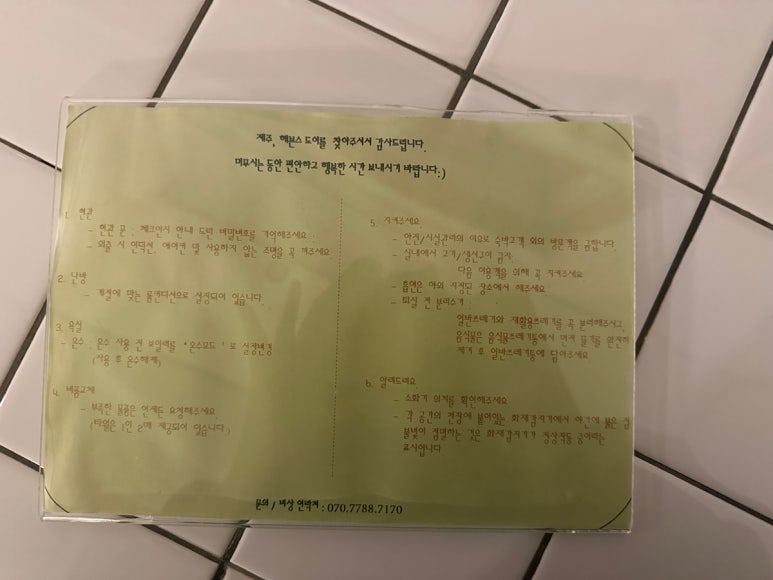 제주, 헤븐스 도어를 찾아주셔서 감사드립니다.
머무시는 동안 편안하고 행복한 시간 보내시기 바랍니다:)
1. 현관
- 현관 문 : 체크인시 안내 드린 비밀번호를 기억해주세요
- 외출 시 인덕션, 에어컨 및 사용하지 않는 조명을 꼭 꺼주세요
2. 난방
- 계절에 맞는 룸컨디션으로 설정되어 있습니다.
3. 욕실
- 온수 : 온수 사용 전 보일러를 "온수모드"로 설정변경
(사용 후 온수해제)
4. 비품교체
- 부족한 물품은 언제든 요청해주세요.
(타월은 1인 2매 제공되어 있습니다.)
5. 지켜주세요.
- 안전/시설관리의 이유로 숙박고객 외의 방문객을 금합니다.
- 실내에서 고기/생선구이 금지:
다음 이용객을 위해 꼭 지켜주세요
- 흡연은 야외 지정된 장소에서 해주세요
- 퇴실 전 분리수거 :
일반쓰레기와 재활용쓰레기를 꼭 분리해주시고,
음식물은 음식물쓰레기통에서 먼저 물기를 완전히
제거 후 일반쓰레기통에 담아주세요
6. 알려드려요.
- 소화기 위치를 확인해주세요
- 각 공간의 천장에 붙어있는 화재감지기에서 야간에 붉은 점
불빛이 점멸하는 것은 화재감지기가 정상작동 중이라는
표시입니다
문의 / 비상 연락처 : 070.7788.7170